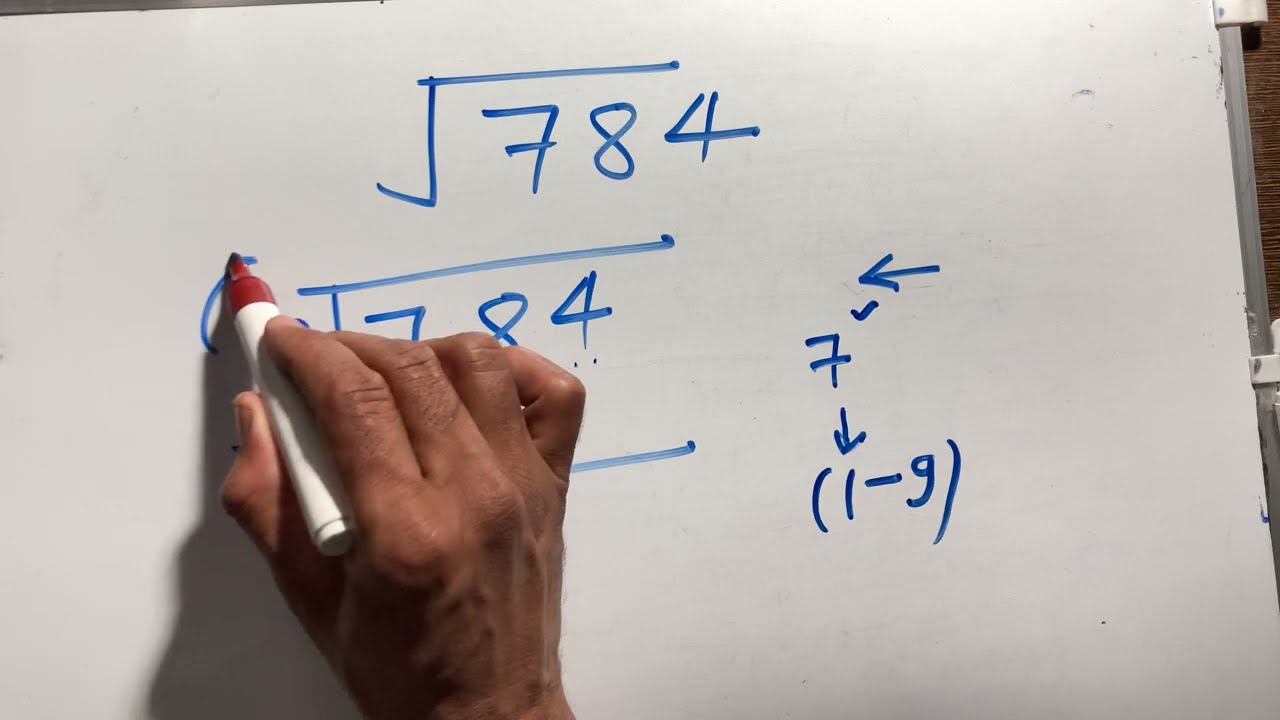 √784
√784
←
✓
7
↓
(1-9)